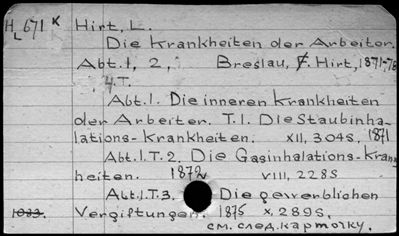 H L 671 к Hirt, L.
Die Krankheiten der Arbeiter.
Abt.1, 2, Breslau, F. Hirt, 1871-78
4.T.
Abt.1. Die inneren Krankheiten
der Arbeiter. T.1. Die Staubinha-
lations-Krankheiten. XII, 304S, 1871
Abt.1.T.2. Die Gasinhalations-Krank
heiten. 1872 VIII, 228S
Abt.1.T.3. Die gewerblichen
1033. Vergiftungen. 1875 X, 289S,
см. след. карточку.